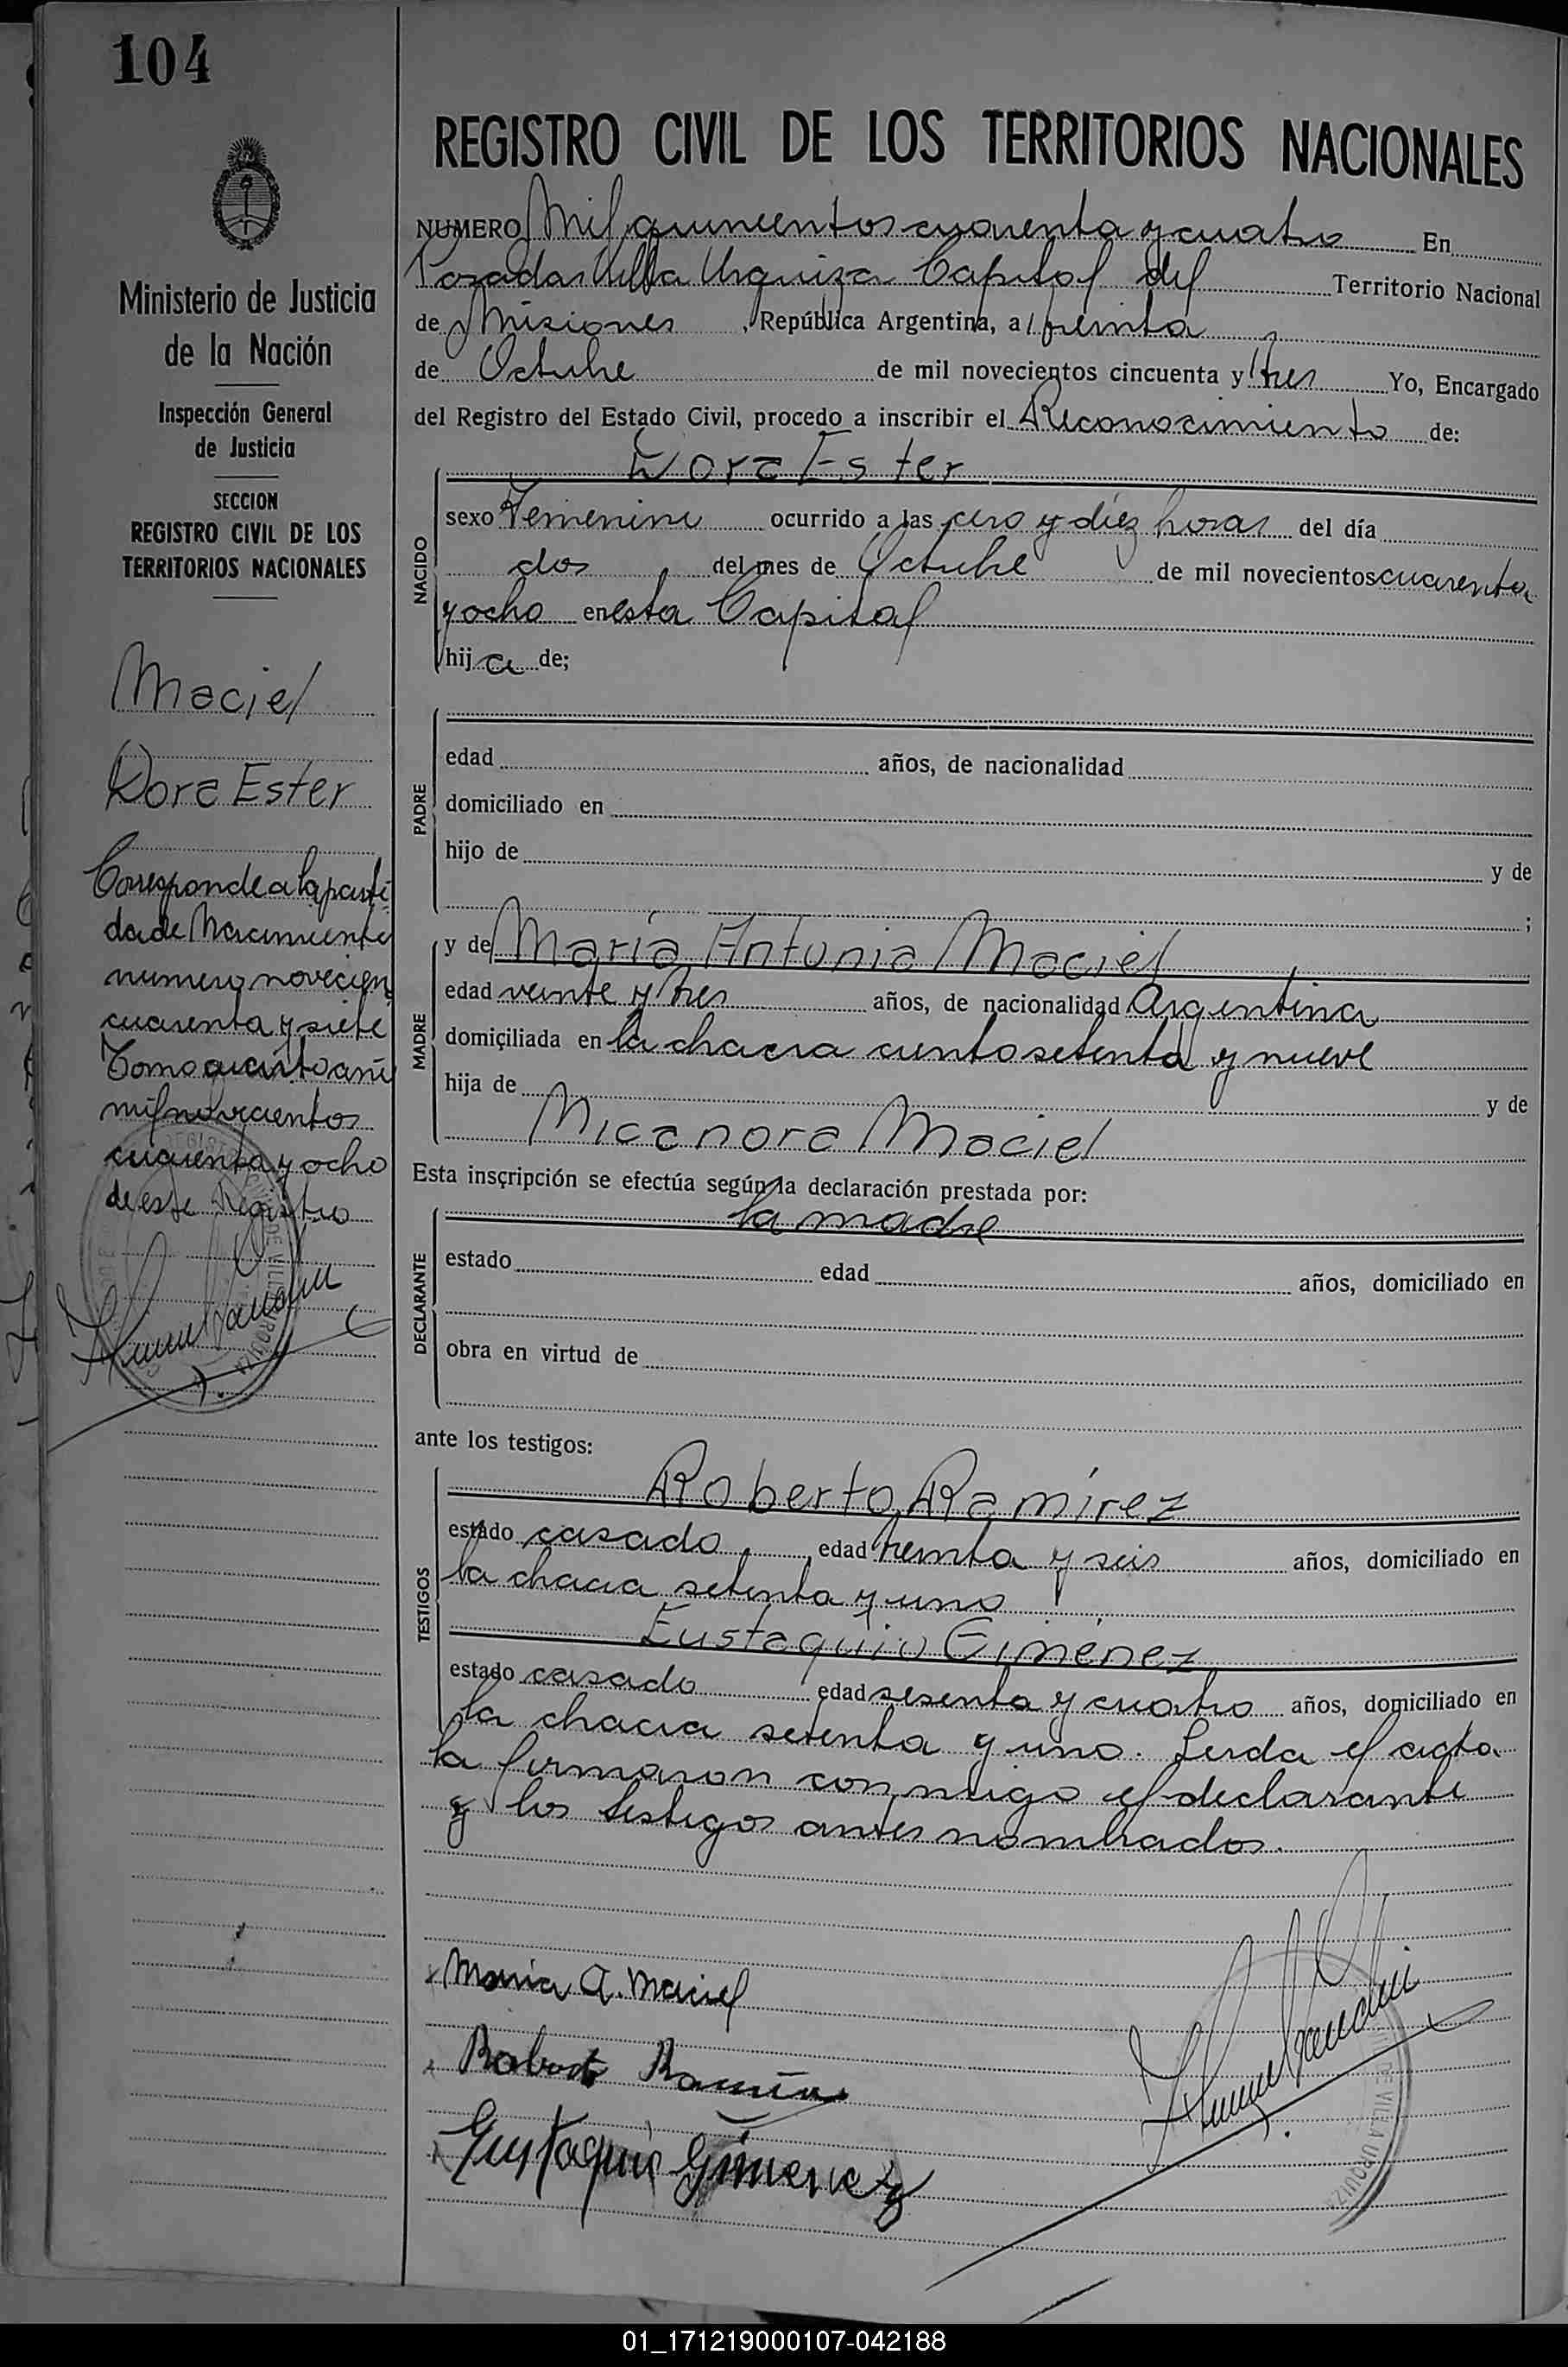 104
REGISTRO CIVIL DE LOS TERRITORIOS NACIONALES
Ministerio de Justicia
de la Nación
Inspección General
de Justicia
SECCION
REGISTRO CIVIL DE LOS
TERRITORIOS NACIONALES
Maciel
Dora Ester
Corresponde a la parti
da de Nacimiento
numero novecien
cuarenta y siete
Tomo cuarto añ
mil novecientos
cuarenta y ocho
de este Registro
NUMERO Mil quinientos cuarenta y cuatro En
Posadas Villa Urquiza Capital del Territorio Nacional
de Misiones, República Argentina, a treinta
de Octubre de mil novecientos cincuenta y tres Yo, Encargado
del Registro del Estado Civil, procedo a inscribir el Reconocimiento de:
Dora Ester
NACIDO
sexo Femenino ocurrido a las cero y diez horas del día
dos del mes de Octubre de mil novecientos cuarenta
y ocho en esta Capital
hija de;
PADRE
edad años, de nacionalidad
domiciliado en
hijo de y de
;
MADRE
y de María Antonia Maciel
edad veinte y tres años, de nacionalidad Argentina
domiciliada en la chacra ciento setenta y nueve
hija de y de
Nicanora Maciel
Esta inscripción se efectúa según la declaración prestada por:
la madre
DECLARANTE
estado edad años, domiciliado en
obra en virtud de
ante los testigos:
TESTIGOS
Roberto Ramírez
estado casado, edad treinta y seis años, domiciliado en
la chacra setenta y uno
Eustaquio Giménez
estado casado edad sesenta y cuatro años, domiciliado en
la chacra setenta y uno. Leida el acta
la firmaron conmigo el declarante
y los testigos antes nombrados.
Maria A. Maciel
Roberto Ramirez
Eustaquio Gimenez
DE VILLA URQUIZA
01_171219000107-042188